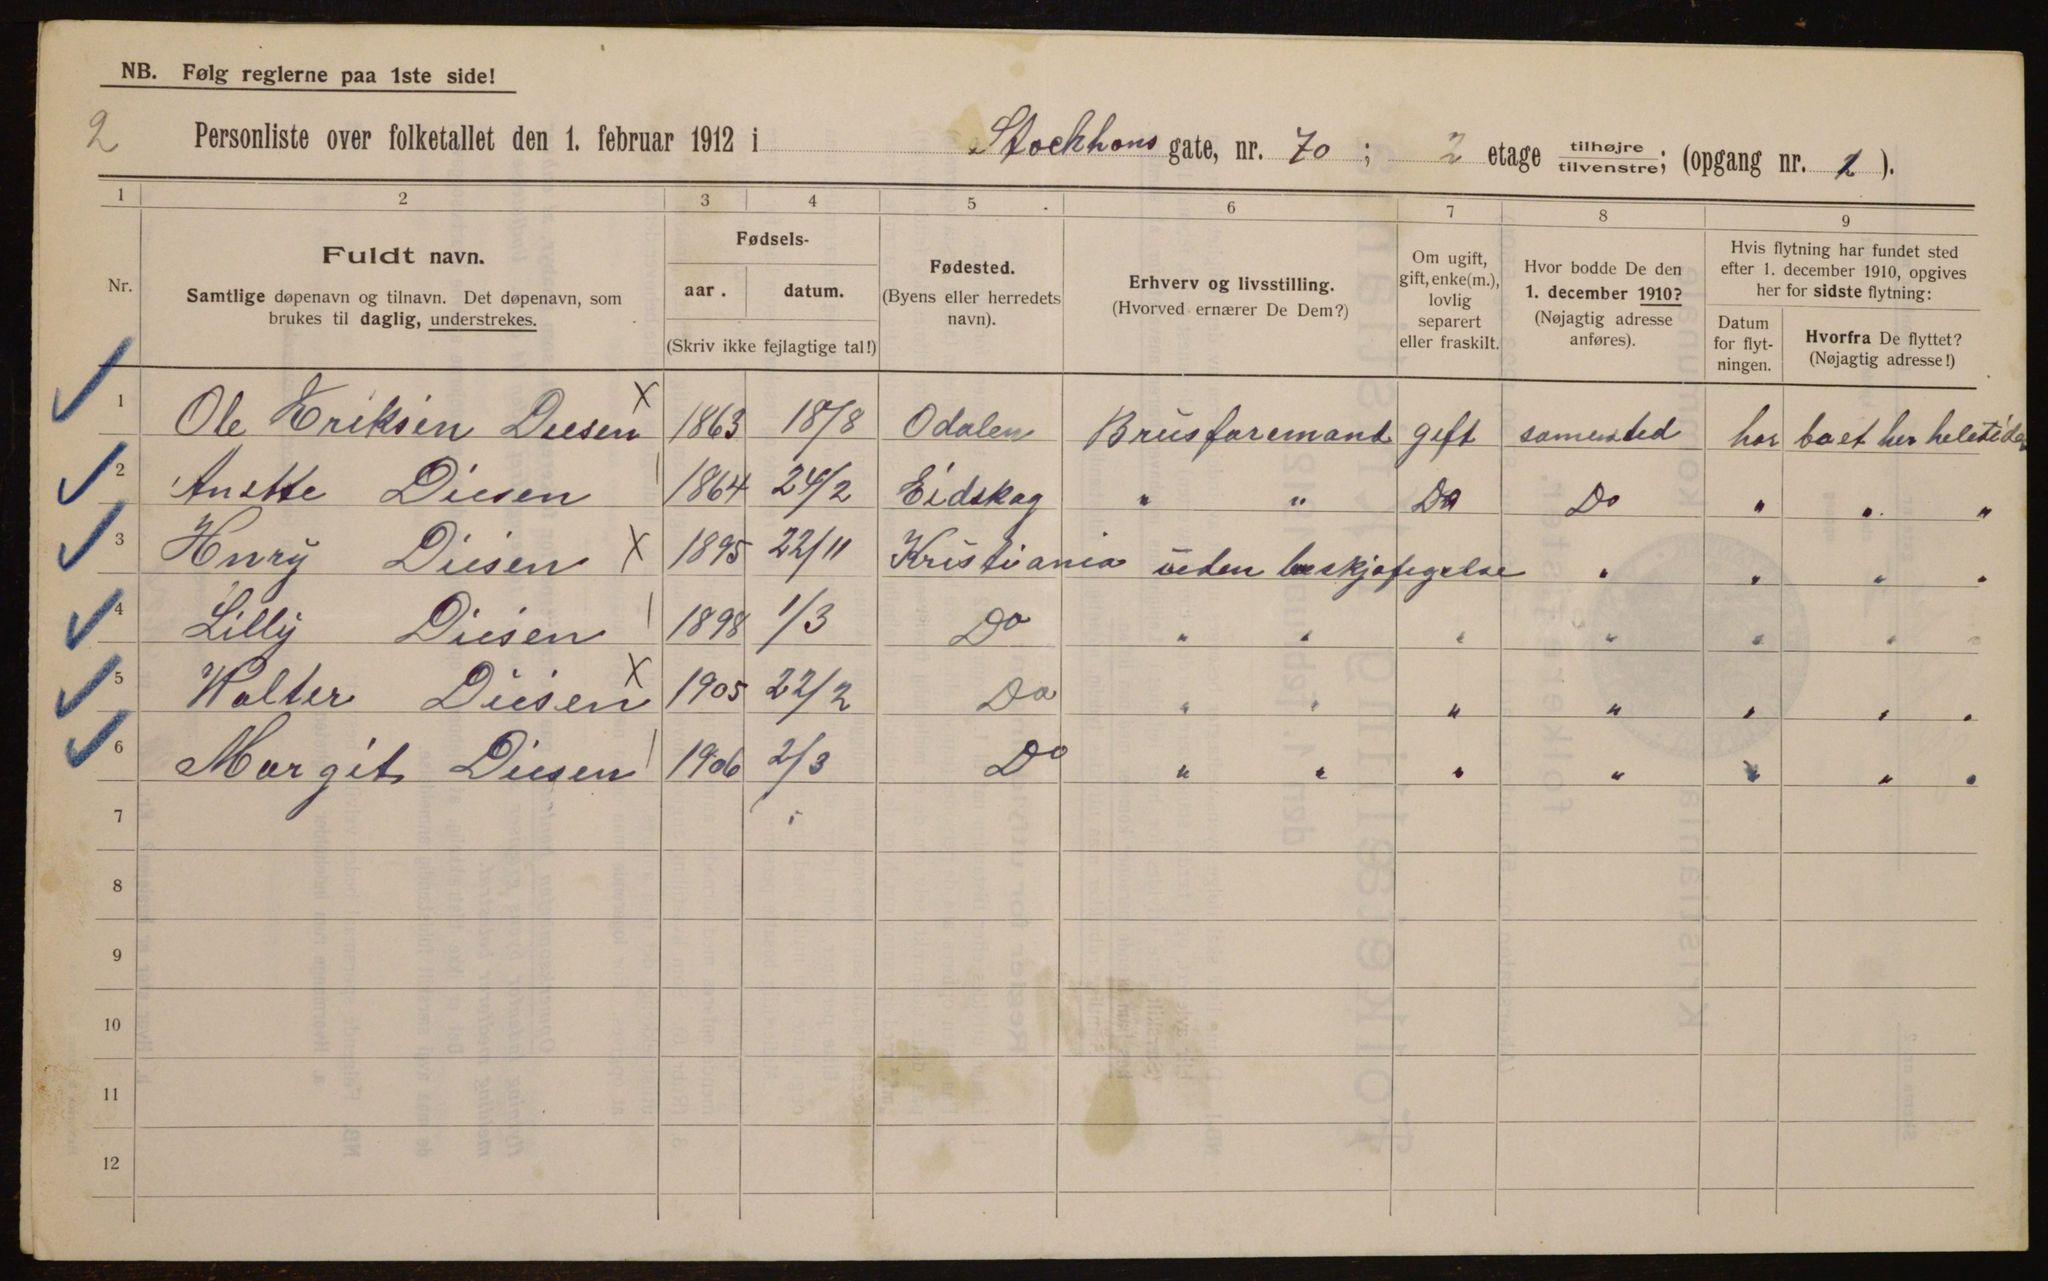 NB. Følg reglerne paa 1ste side!
2 Personliste over folketallet den 1. februar 1912 i Stockhons gate, nr. 70 ; 2 etage tilhøjre/tilvenstre; (opgang nr. 1 ).
1 2 3 4 5 6 7 8 9
Nr.
Fuldt navn.
Samtlige døpenavn og tilnavn. Det døpenavn, som
brukes til daglig, understrekes.
Fødsels-
aar. datum.
(Skriv ikke fejlagtige tal!)
Fødested.
(Byens eller herredets
navn).
Erhverv og livsstilling.
(Hvorved ernærer De Dem?)
Om ugift,
gift, enke(m.),
lovlig
separert
eller fraskilt.
Hvor bodde De den
1. december 1910?
(Nøjagtig adresse
anføres).
Hvis flytning har fundet sted
efter 1. december 1910, opgives
her for sidste flytning:
Datum
for flyt-
ningen.
Hvorfra De flyttet?
(Nøjagtig adresse!)
1 Ole Eriksen Diesen X 1863 18/8 Odalen Brusforemand gift samested har boet her heletiden
2 Anette Diesen 1864 24/2 Eidskog " " Do Do " " "
3 Henry Diesen X 1895 22/11 Kristiania uden beskjæfigelse " " " "
4 Lilly Diesen 1898 1/3 Do " " " " " "
5 Walter Diesen X 1905 22/2 Do " " " " " " "
6 Margit Diesen 1906 2/3 Do " " " " " " "
7
8
9
10
11
12